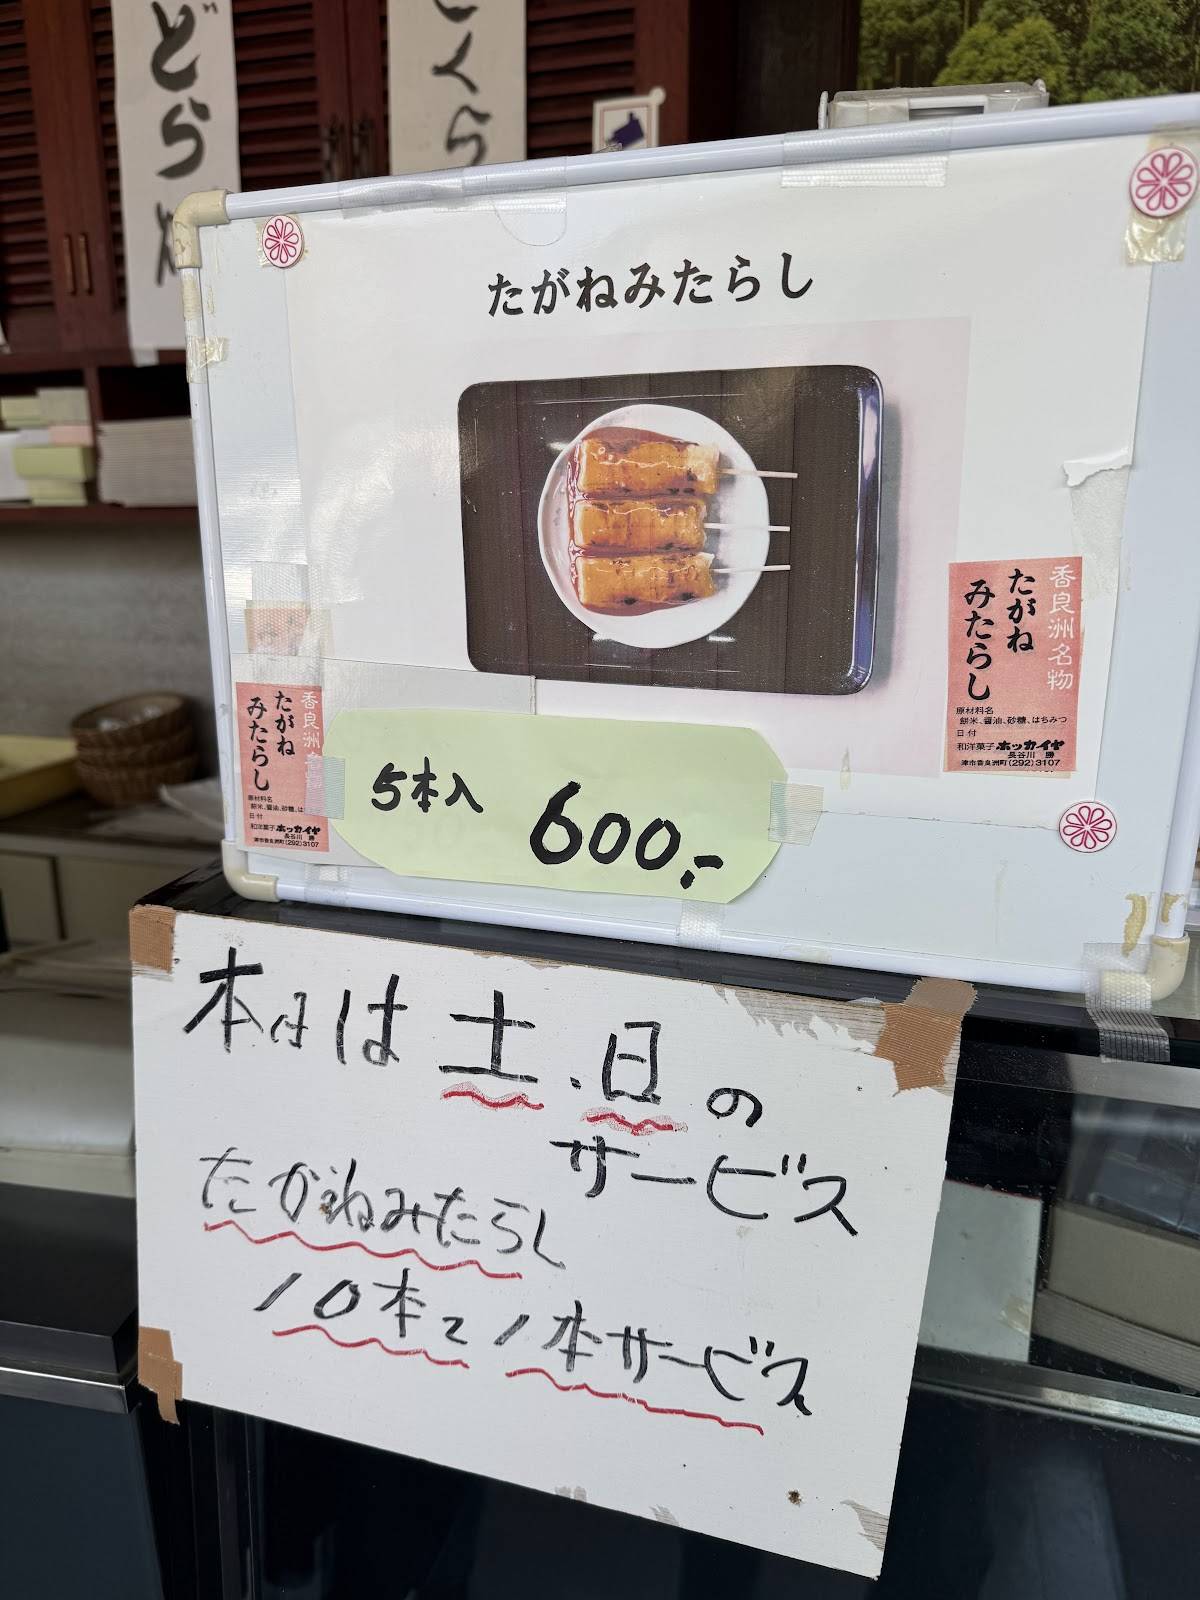 どら
くら
たがねみたらし
香良洲名物
たがね
みたらし
原材料名
餅米、醤油、砂糖、はちみつ
日付
和洋菓子 ホッカイヤ
長谷川 勝
津市香良洲町(292)3107
香良洲名物
たがね
みたらし
原材料名
餅米、醤油、砂糖、は
日付
和洋菓子 ホッカイヤ
長谷川 勝
津市香良洲町(292)3107
5本入 600,-
本日は土.日の
サービス
たがねみたらし
10本で1本サービス